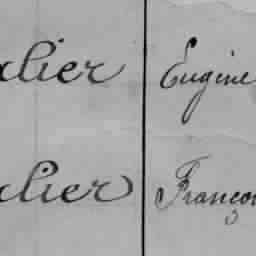 alier Eugène
alier Franço